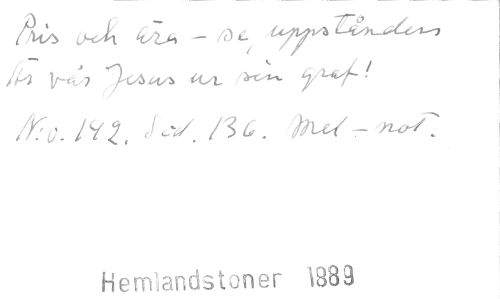 Pris och ära - se, uppstånden
Är vår Jesus ur sin graf!
N:o. 142. Sid. 136. Mel-not.
Hemlandstoner 1889